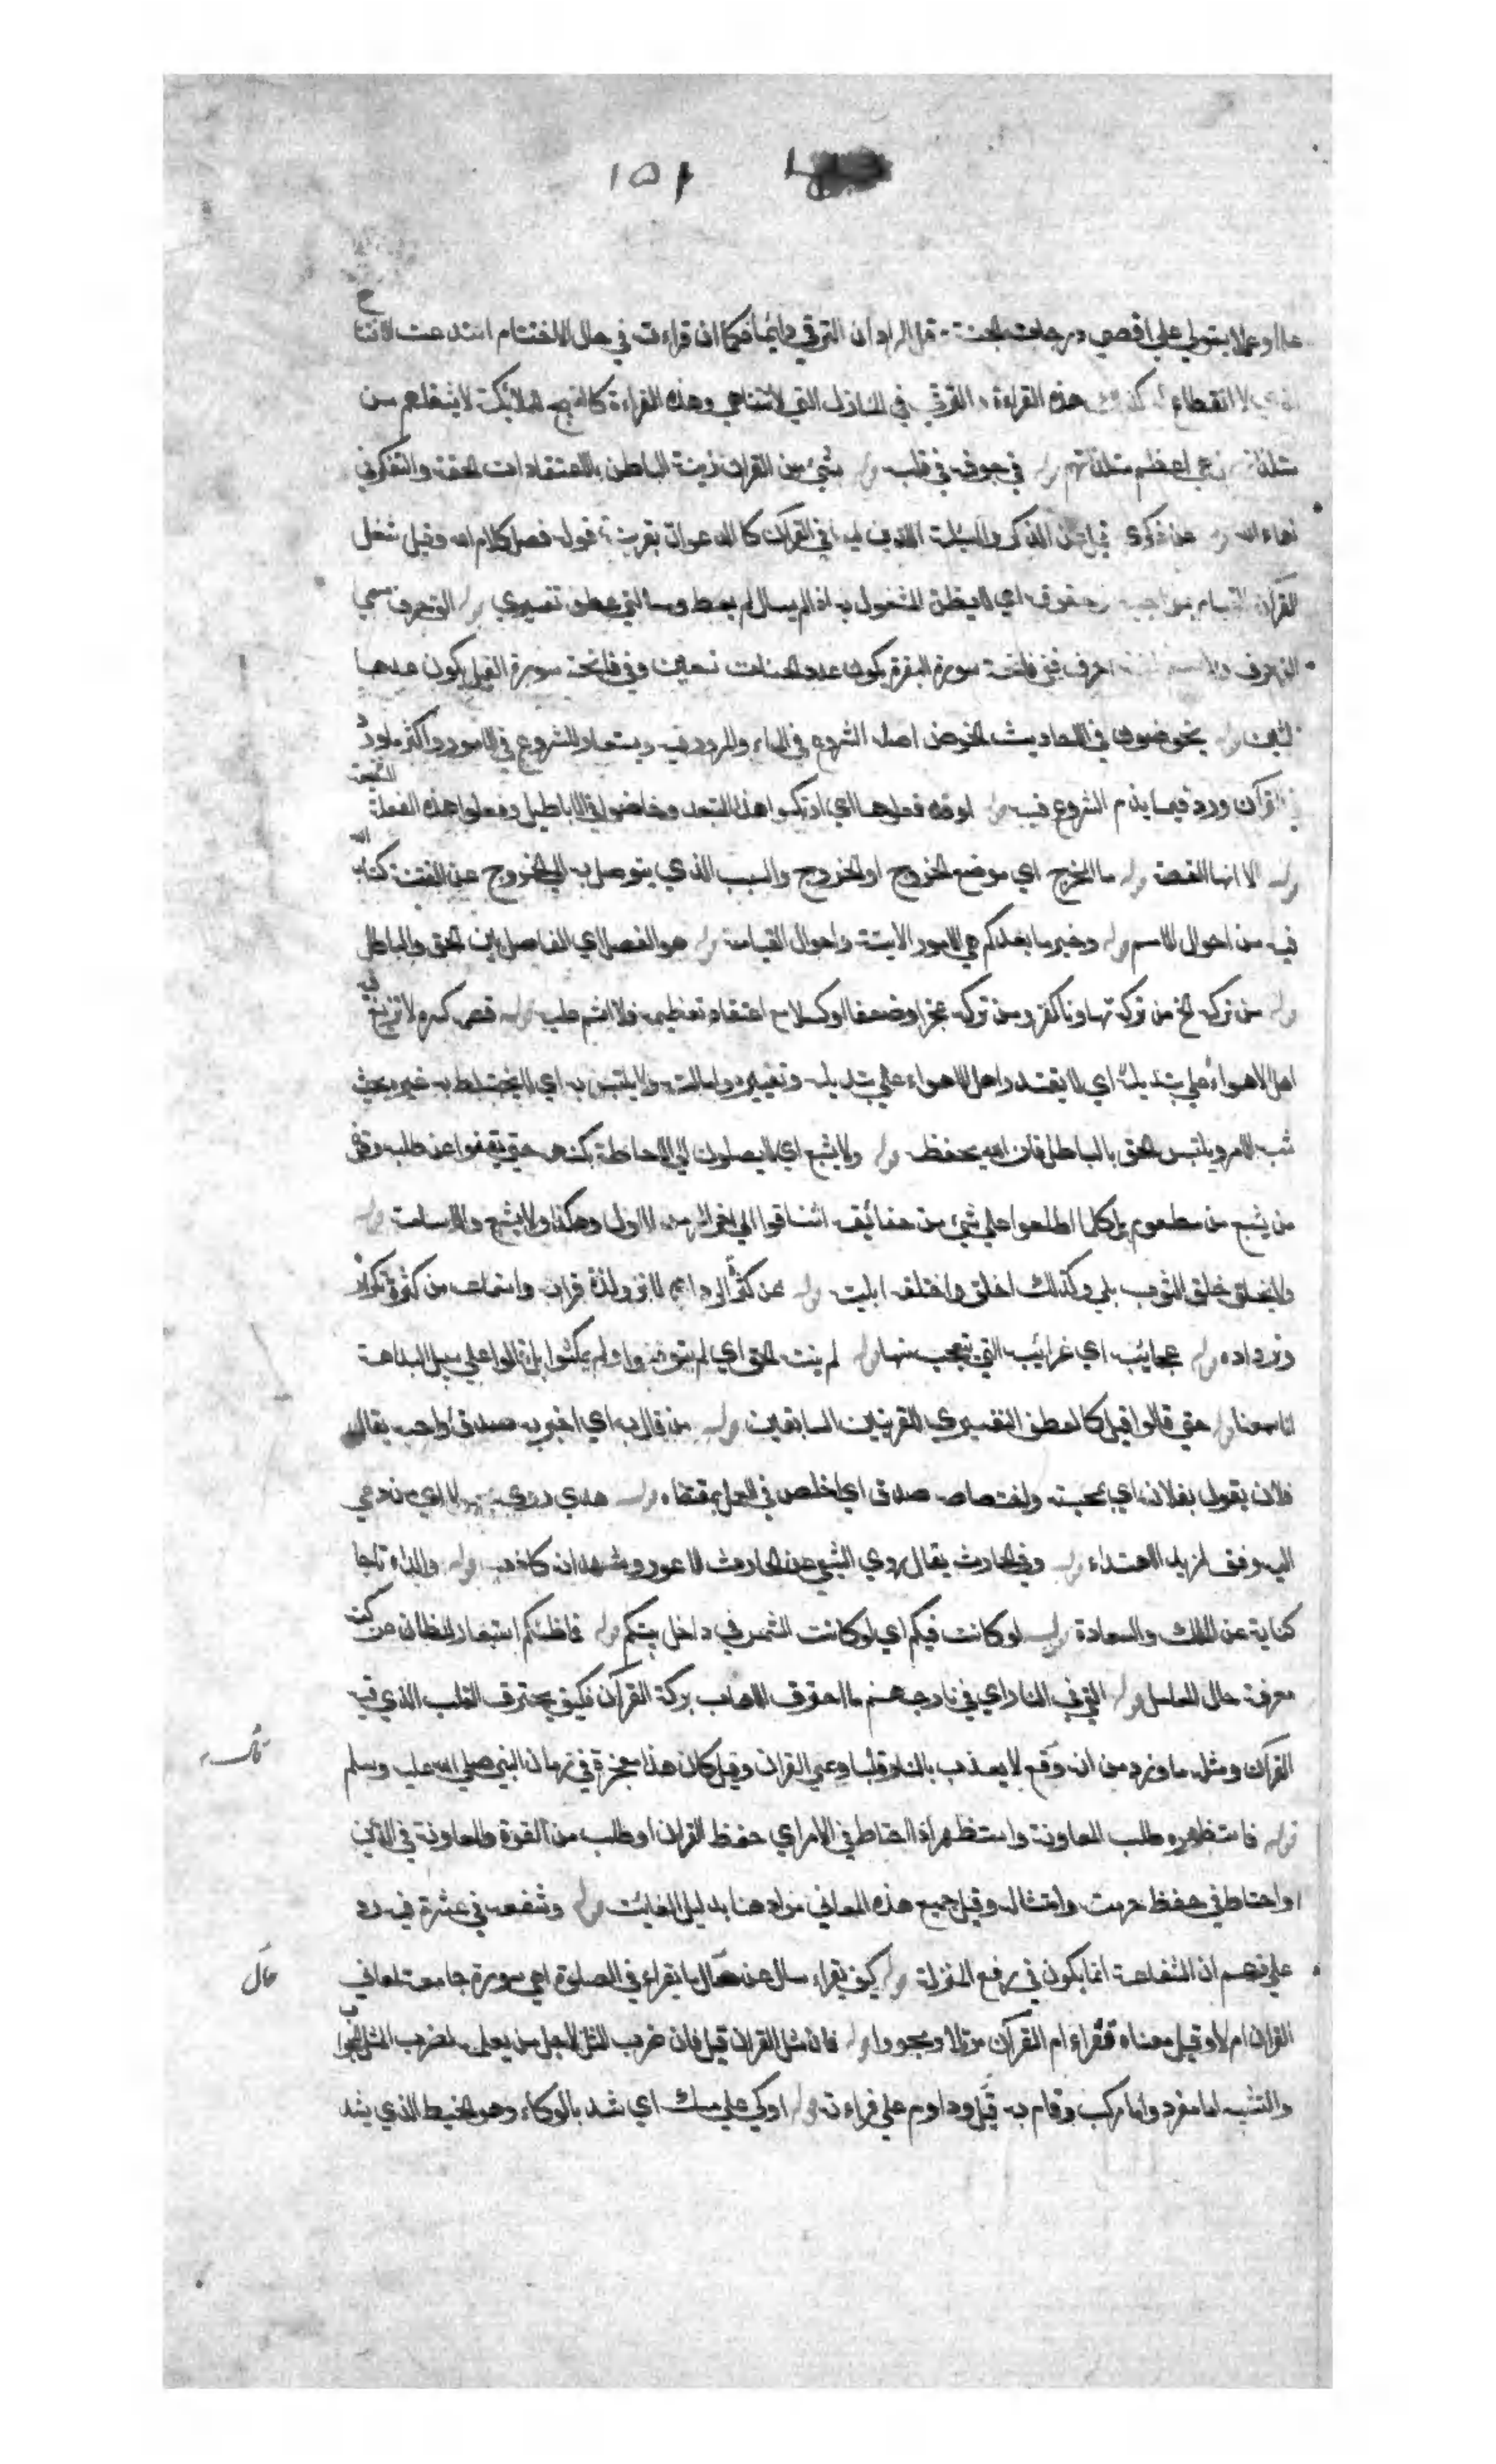 ١٥٢
علما وعملا يستولي علي اقصي درجات الجنة قيل المراد ان الترقي دايما فكما ان قراءته في حال الاختتام استدعت الافتتاح
الذي لا انقطاع له كذلك هذه القراءة والترقي في المنازل التي لا تتناهي وهذه القراءة كالتسبيح للملائكة لا يشغلهم من
مستلذاتهم بل هي اعظم مستلذاتهم قوله في جوفه في قلبه قوله شيء من القران زينة الباطن بالاعتقادات الحقة والتفكر في
نعماء الله قوله عن ذكري اي عن الذكر والمسئلة الذين ليسا في القرآن كالدعوات بقرينة قوله فضل كلام الله وقيل شغل
القرآن القيام بمواجبه وحقوقه اي لا يظن المشغول به اذا لم يسال لم يعط ومسالتي عطف تفسيري قوله الم حرف مسمي
احرف ففي فاتحة سورة البقرة يكون عدد الحسنات تسعين وفي فاتحة سورة الفيل يكون عددها
ثلثين قوله يخوضون في الاحاديث الخوض اصله الشروع في الماء والمرور فيه ويستعار للشروع في الامور واكثر ما ورد
في القرآن ورد فيما يذم الشروع فيه قوله اوقد فعلوها اي ارتكبوا هذا التبعد وخاضوا في الاباطيل وفعلوا هذه الفعلة الشنيعة
قوله الا انها القصة قوله ما المخرج اي موضع الخروج او الخروج والسبب الذي يتوصل به الي الخروج عن الفتنة كتاب الله
فيه من احوال الامم قوله وخبر ما بعدكم هي الامور الاتية واحوال القيامة قوله هو الفصل اي الفاصل بين الحق والباطل
قوله من تركه الخ من تركه تهاونا كفر ومن تركه عجزا وضعفا او كسلا مع اعتقاد تعظيمه فلا اثم عليه قوله قصمه كسره لا تزيغ به
اهل الاهواء علي تبديله اي لا يقتدر اهل الاهواء علي تبديله وتغييره وامالته ولا يلتبس به اي لا يختلط به غيره بحيث
يشتبه الامر ويلتبس الحق بالباطل فان الله يحفظه قوله ولا يشبع اي لا يصلون الي الاحاطة بكنهه حتي يقفوا عن طلبه وقوف
من يشبع من مطعوم بل كلما اطلعوا علي شيء من حقائقه اشتاقوا الي اخر اكثر من الاول وهكذا ولا يشبع ولا سامة قوله
ولا يخلق خلق الثوب بلي وكذلك اخلق واخلقه ابليته قوله عن كثرة الرد اي لا تزول لذة قراءته واستماعه من كثرة تكراره
وترداده قوله عجائبه اي غرائبه التي يتعجب منها قوله لم ينته الجن اي لم يتوقفوا ولم يمكثوا بل قالوا علي سبيل البداهة
انا سمعنا قوله حتي قالوا قيل كالعطف التفسيري للقرينين السابقين قوله من قال به اي اخبر به صدق اواحب يقال
فلان يقول بفلان اي بمحبته واختصاصه صدق اي اخلص في العمل بمقتضاه قوله هدي روي مجهولا اي من دعي
اليه وفق لمزيد الاهتداء قوله وفي الحارث يقال روي الشعبي عن الحارث الاعور وشهد انه كاذب قوله والداه تاجا
كناية عن الملك والسعادة قوله لو كانت فيكم اي لو كانت الشمس في داخل بيتكم قوله فما ظنكم استبعاد للظان عن كنه
معرفة حال العامل قوله القي في النار اي في نار جهنم ما احترق الاهاب ببركة القرآن فكيف يحترق القلب الذي فيه
القرآن ومثله ما ورد من انه وقع لا يعذب بالنار قلبا وعي القران وقيل كان هذا معجزة في زمان النبي صلي الله عليه وسلم
قوله فاستظهره طلب المعاونة واستظهر اذا احتاط في الامر اي حفظ القران او طلب منه القوة والمعاونة في الدين
واحتاط في حفظ حرمته وامتثاله وقيل جميع هذه المعاني مراد هنا بدليل الفائت قوله وشفعه في عشرة فيه رد
علي زعم ان الشفاعة انما يكون في رفع المنزلة قوله كيف تقراء سال عن حال ما يقراء في الصلوة اهي سورة جامعة لمعاني
القران ام لا وقيل معناه فقراء ام القرآن مرتلا ومجودا قوله فان مثل القران قيل فان ضرب المثل لاجل من يعلمه لضرب المثل
والتشبيه اما مفرد واما مركب وقام به قيل وداوم علي قراءته قوله اوكي علي مسك اي شد بالوكاء وهو الخيط الذي يشد
حال